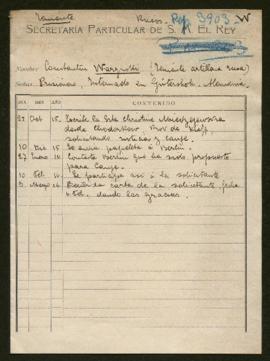 Teniente Ruso. Rep. 3903 - W
SECRETARÍA PARTICULAR DE S. M. EL REY
Nombre Constantin (Teniente artillería rusa)
Señas Prisionero, Internado en Gütersloh. Alemania
DÍA MES AÑO CONTENIDO
Oct 15. Escribe la Srta Christine
desde
solicitando noticias y canje.
10 Dic 15. Se envía papeleta á Berlín.
27 Enero 16. Contesta Berlín que ha sido propuesto
para canje.
10 Feb. 16. Se participa así á la solicitante
9. Mayo 16. Escribe carta de la solicitante, fecha
4 Feb. dando las gracias.